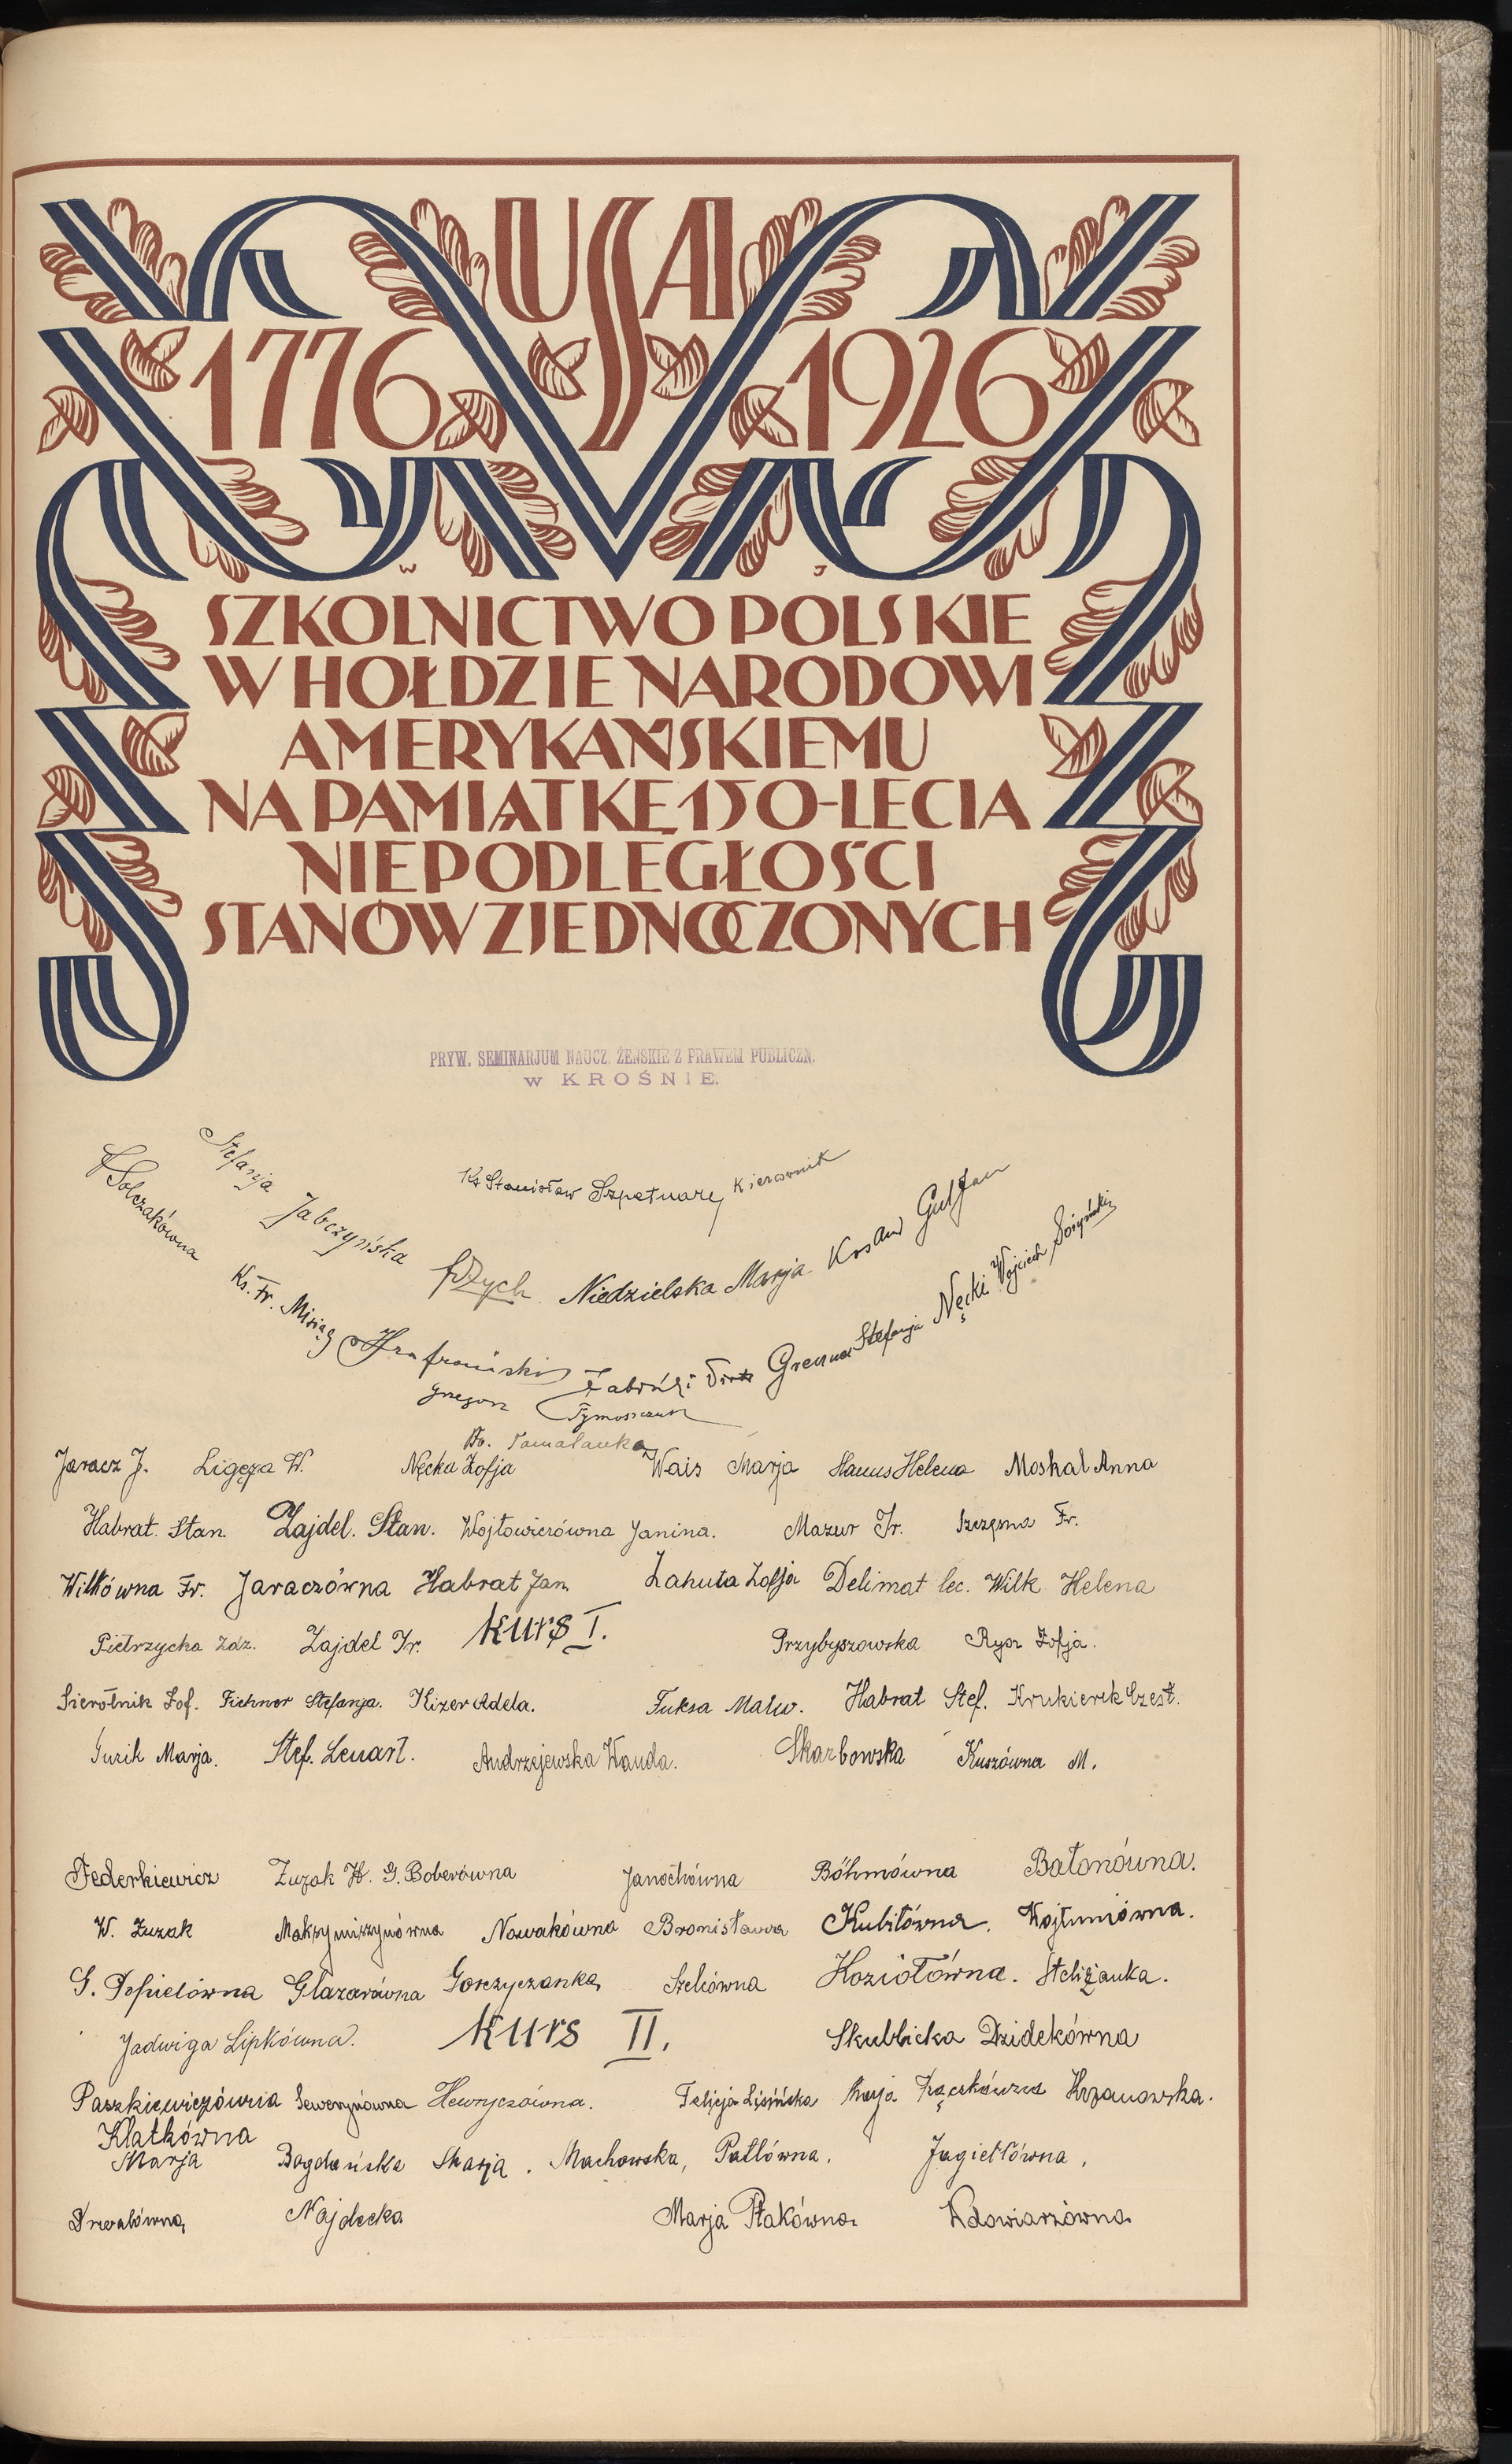 USA
1776 1926
W J
SZKOLNICTWO POLSKIE
W HOŁDZIE NARODOWI
AMERYKAŃSKIEMU
NA PAMIĄTKĘ 150-LECIA
NIEPODLEGŁOŚCI
STANÓW ZJEDNOCZONYCH
PRYW. SEMINARJUM NAUCZ. ŻEŃSKIE Z PRAWEM PUBLICZN.
W KROŚNIE.
Ks Stanisław Szpetnar kierownik
Stefanja Jabczyńska Niedzielska Marja
Solczakówna
Ks. Fr. Misiąg Stefanja Nęcki Wojciech
Grzegorz Tymoszczuk
Jaracz J. Ligęza W. Nęcka Zofja Wais Marja Hanus Helena Moskal Anna
Habrat. Stan. Zajdel. Stan. Wojtowiczówna Janina. Mazur Fr. Szczęsna Fr.
Wilkówna Fr. Jaraczówna Habrat Jan. Zahuta Zofja Delimat lec. Wilk Helena
Pietrzycka Zdz. Zajdel Fr. Kurs I. Przybyszowska Rysz Zofja.
Sierotnik Zof. Fichner Stefanja. Kizer Adela. Fuksa Malw. Habrat Stef. Krukierek Czest.
Guzik Marja. Stef. Lenart. Andrzejewska Wanda. Skarbowska Kuszówna M.
Federkiewicz Zuzak H. G. Boberówna Janochówna Böhmówna Batonówna.
W. Zuzak Maksymiszynówna Nowakówna Bronisława Kubitówna. Wojtuniówna.
G. Popielówna Glazarówna Gorczyczanka Szelcówna Koziołówna. Steliżanka.
Jadwiga Lipkówna. Kurs II. Skublicka Dzidekówna
Paszkiewiczówna Sewerynówna Henryczówna. Felicja Lisińska Krzanowska.
Klatkówna
Marja Bogdańska Marja. Machowska, Patlówna. Jagiełłówna.
Drewalówna, Najdecka Marja Ptakówna. Wdowiarzówna.